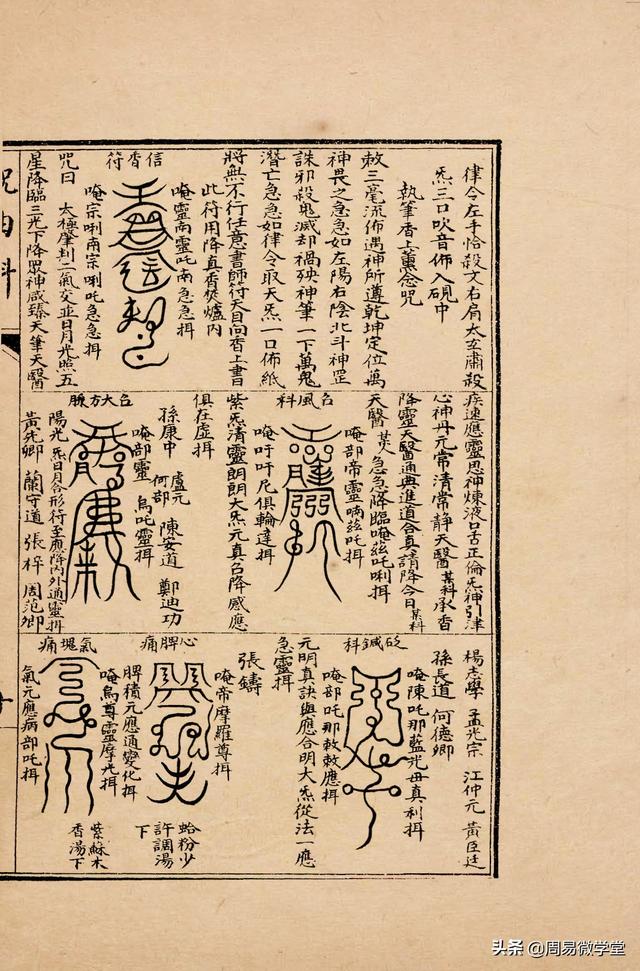 律令左手恰殺文右扃太玄肅殺
炁三口吹音佈入硯中
執筆香上薰念咒
敕三毫流佈遇神所遵乾坤定位萬
神畏之急急如左陽右陰北斗神罡
誅邪殺鬼滅却禍殃神筆一下萬鬼
潛亡急急如律令取天炁一口佈紙
將無不行任意書師符天目向香上書
此符用降真香焚爐内
唵靈南靈吒南急急揖
信香符
唵宗唎南宗唎吒急急揖
咒曰 太極肇判二氣交並日月光照五
星降臨三光下降眾神咸臻天筆天醫
疾速應靈思神煉液口舌正倫炁神引津
心神丹元常清常静天醫某科承香
降靈天醫通與進道合真請降今日某科
天醫某急急降臨唵兹吒唎揖
唵部帝靈喃兹吒揖
召風科
唵吽吽尼俱輪達揖
紫炁清靈朗朗大炁元真召降感應
俱在虛揖
孫康中 盧元 何部 陳安道 鄭迪功
唵部靈 烏吒靈揖
召大方脈
陽光 炁日月合形符至應降内外通靈揖
黄先卿 蘭守道 張梓 周范卿
楊志學 孟光宗 江仲元 黄臣廷
孫長道 何德卿
唵陳吒那藍光毋真利揖
砭鍼科
唵部吒那敕敕應揖
元明真訣與應合明大炁從法一應
急靈揖
張鑄
唵帝摩羅尊揖
心脾痛
蛤粉少
許調湯
下
脾積元應通變化揖
唵烏尊靈摩光揖
氣塊痛
紫蘇木
香湯下
氣元應病部吒揖
头条 @周易微学堂